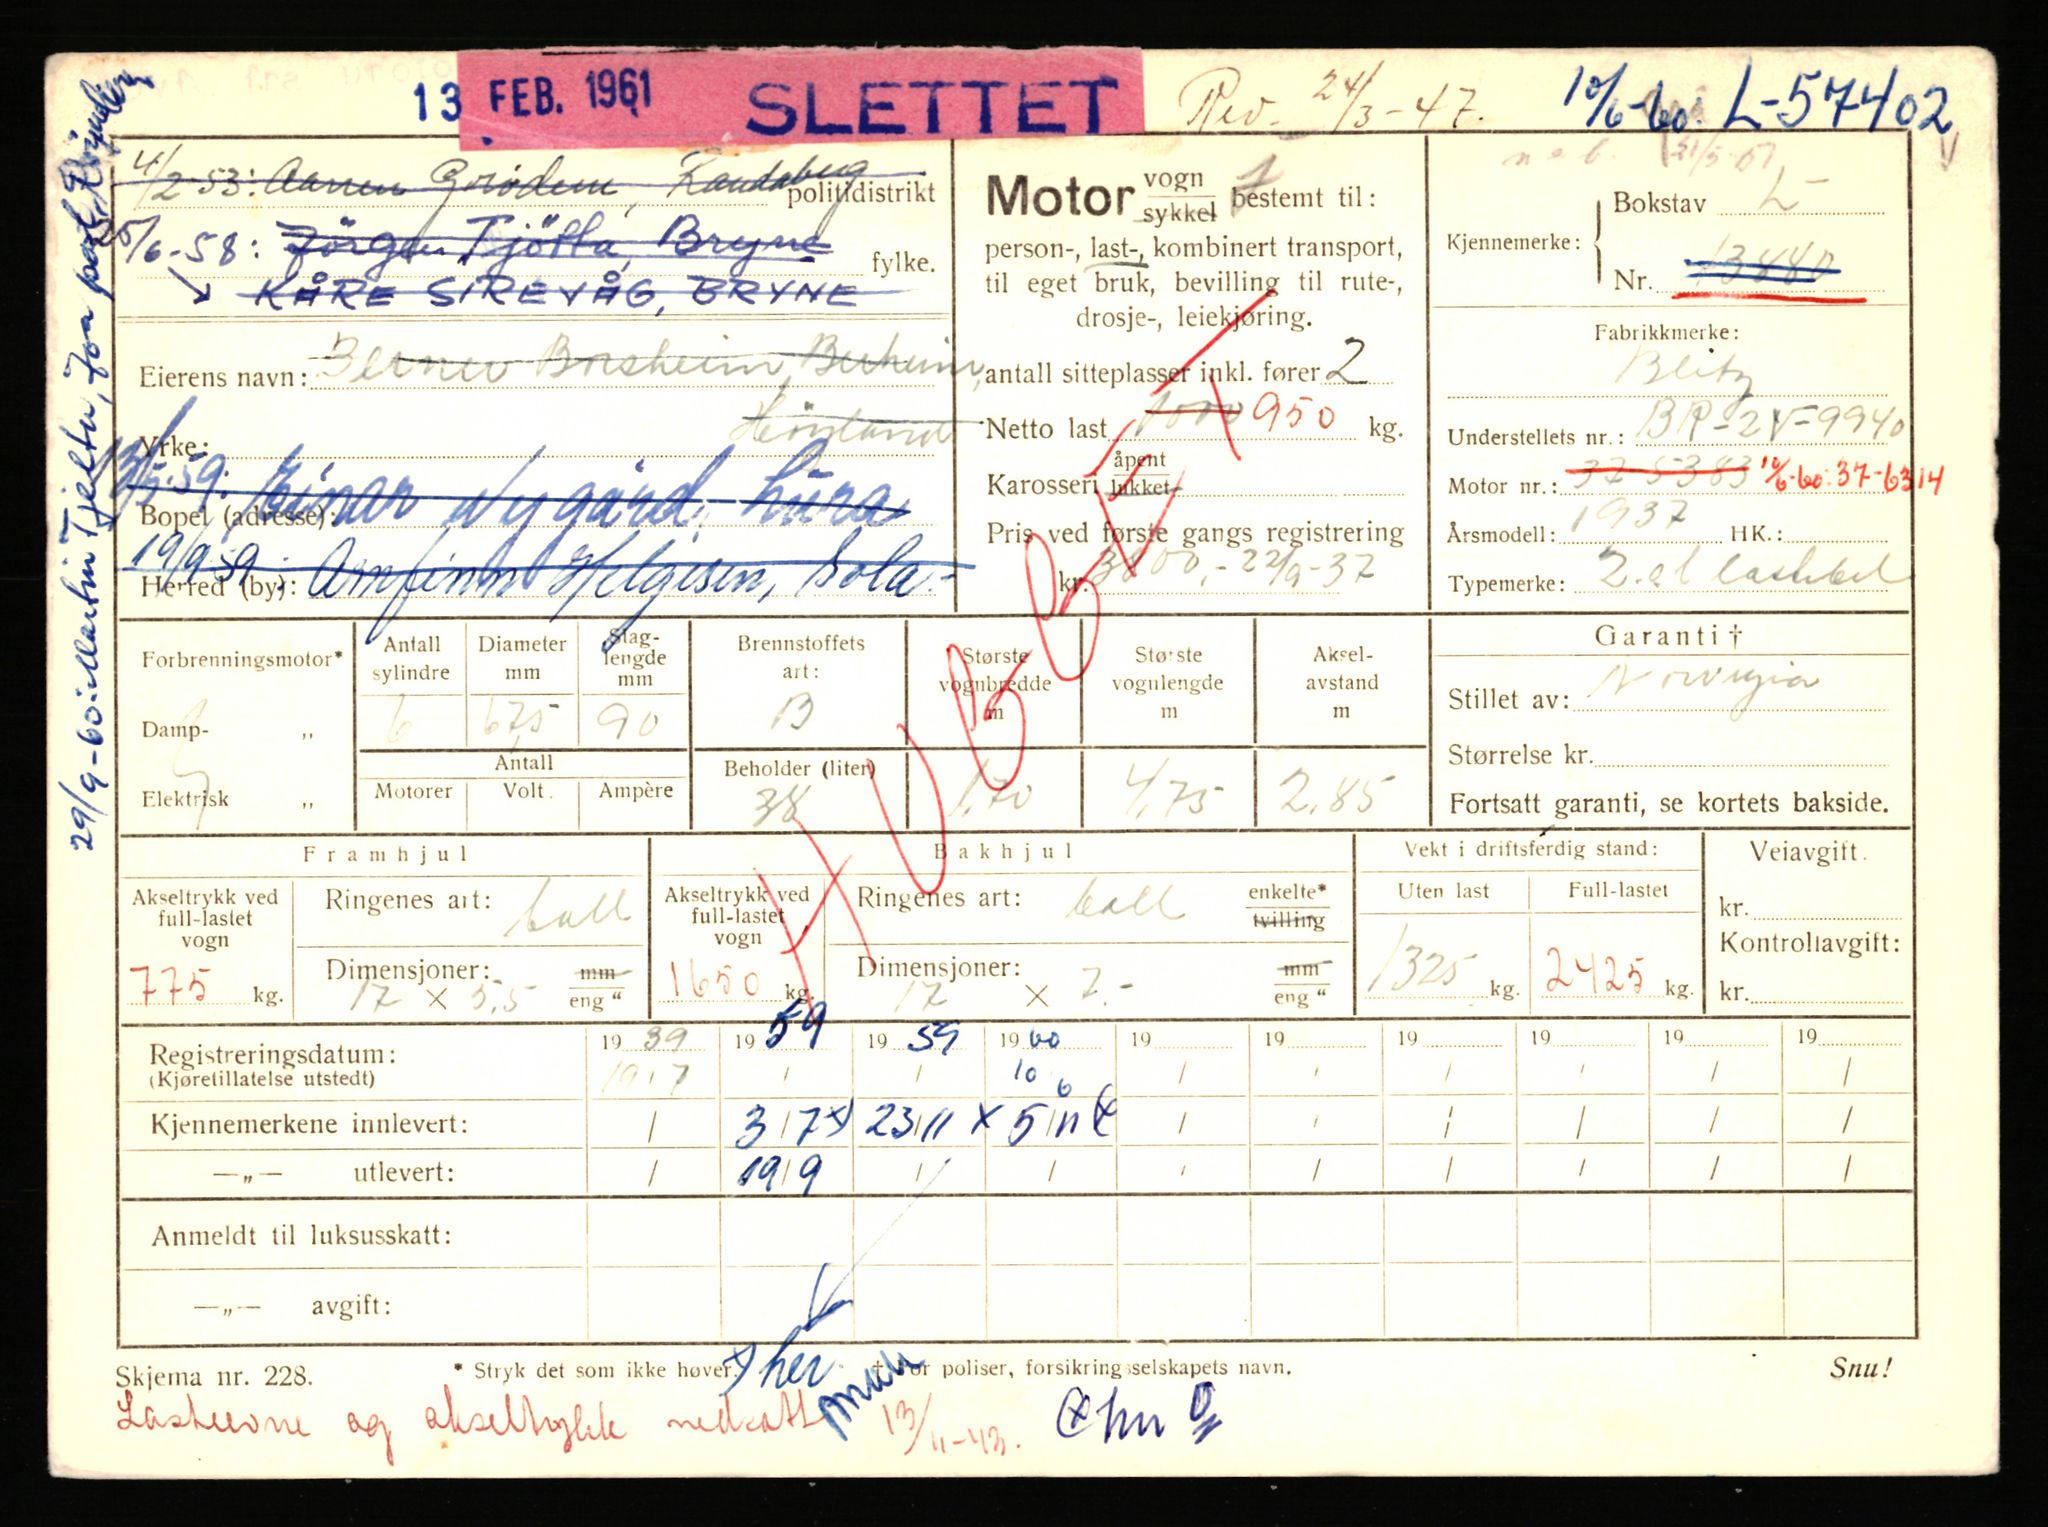 13 FEB. 1961 SLETTET Rev. 24/3-47. 10/6-60: L-57402
4/2-53: Aanen Grødem, Randaberg politidistrikt
25/6-58: Jörgen Tjötta, Bryne fylke.
KÅRE SIREVÅG, BRYNE
Eierens navn: Berner Borsheim, Berheim,
Yrke:
13/5-59: Einar Nygård, Lura
Bopel (adresse):
19/9-59: Arnfinn Helgesen, Sola.-
Herred (by):
29/9-60: Martin Tjelta, Joa
Motor vogn sykkel bestemt til:
person-, last-, kombinert transport,
til eget bruk, bevilling til rute-,
drosje-, leiekjøring.
antall sitteplasser inkl. fører 2
Netto last 1000 950 kg.
Karosseri åpent lukket
Pris ved første gangs registrering
kr. 3800,- 22/9-37
Kjennemerke: Bokstav L
Nr. 13880
Fabrikkmerke:
Blitz
Understellets nr.: BR-2V-9940
Motor nr.: 37-5383 10/6-60: 37-6314
Årsmodell: 1937 HK.:
Typemerke: 2.d lastebil
HUBBET
Forbrenningsmotor*
Damp- „
Elektrisk „
Antall sylindre 6
Diameter mm 67,5
Slaglengde mm 90
Antall
Motorer Volt. Ampère
Brennstoffets art: B
Beholder (liter) 38
Største vognbredde m 1,70
Største vognlengde m 4,75
Akselavstand m 2,85
Garanti †
Stillet av: Norvegia
Størrelse kr.
Fortsatt garanti, se kortets bakside.
Framhjul
Akseltrykk ved full-lastet vogn 775 kg.
Ringenes art: ball
Dimensjoner: 17 × 5,5 mm eng “
Bakhjul
Akseltrykk ved full-lastet vogn 1650 kg.
Ringenes art: ball enkelte* tvilling
Dimensjoner: 17 × 7.- mm eng “
Vekt i driftsferdig stand:
Uten last 1325 kg.
Full-lastet 2425 kg.
Veiavgift.
kr.
Kontrollavgift:
kr.
Registreringsdatum: 19 39 19 59 19 59 19 60 19 19 19 19 19 19
(Kjøretillatelse utstedt) 19/7 / / 10/6 / / / / / /
Kjennemerkene innlevert: / 3/7 x) 23/11 x 5/11 / / / / / /
—„— utlevert: / 19/9 / / / / / / / /
Anmeldt til luksusskatt:
—„— avgift:
Skjema nr. 228. * Stryk det som ikke høver. † For poliser, forsikringsselskapets navn. Snu!
x) her
Lasteevne og akseltrykk nedsatt 13/11-43.